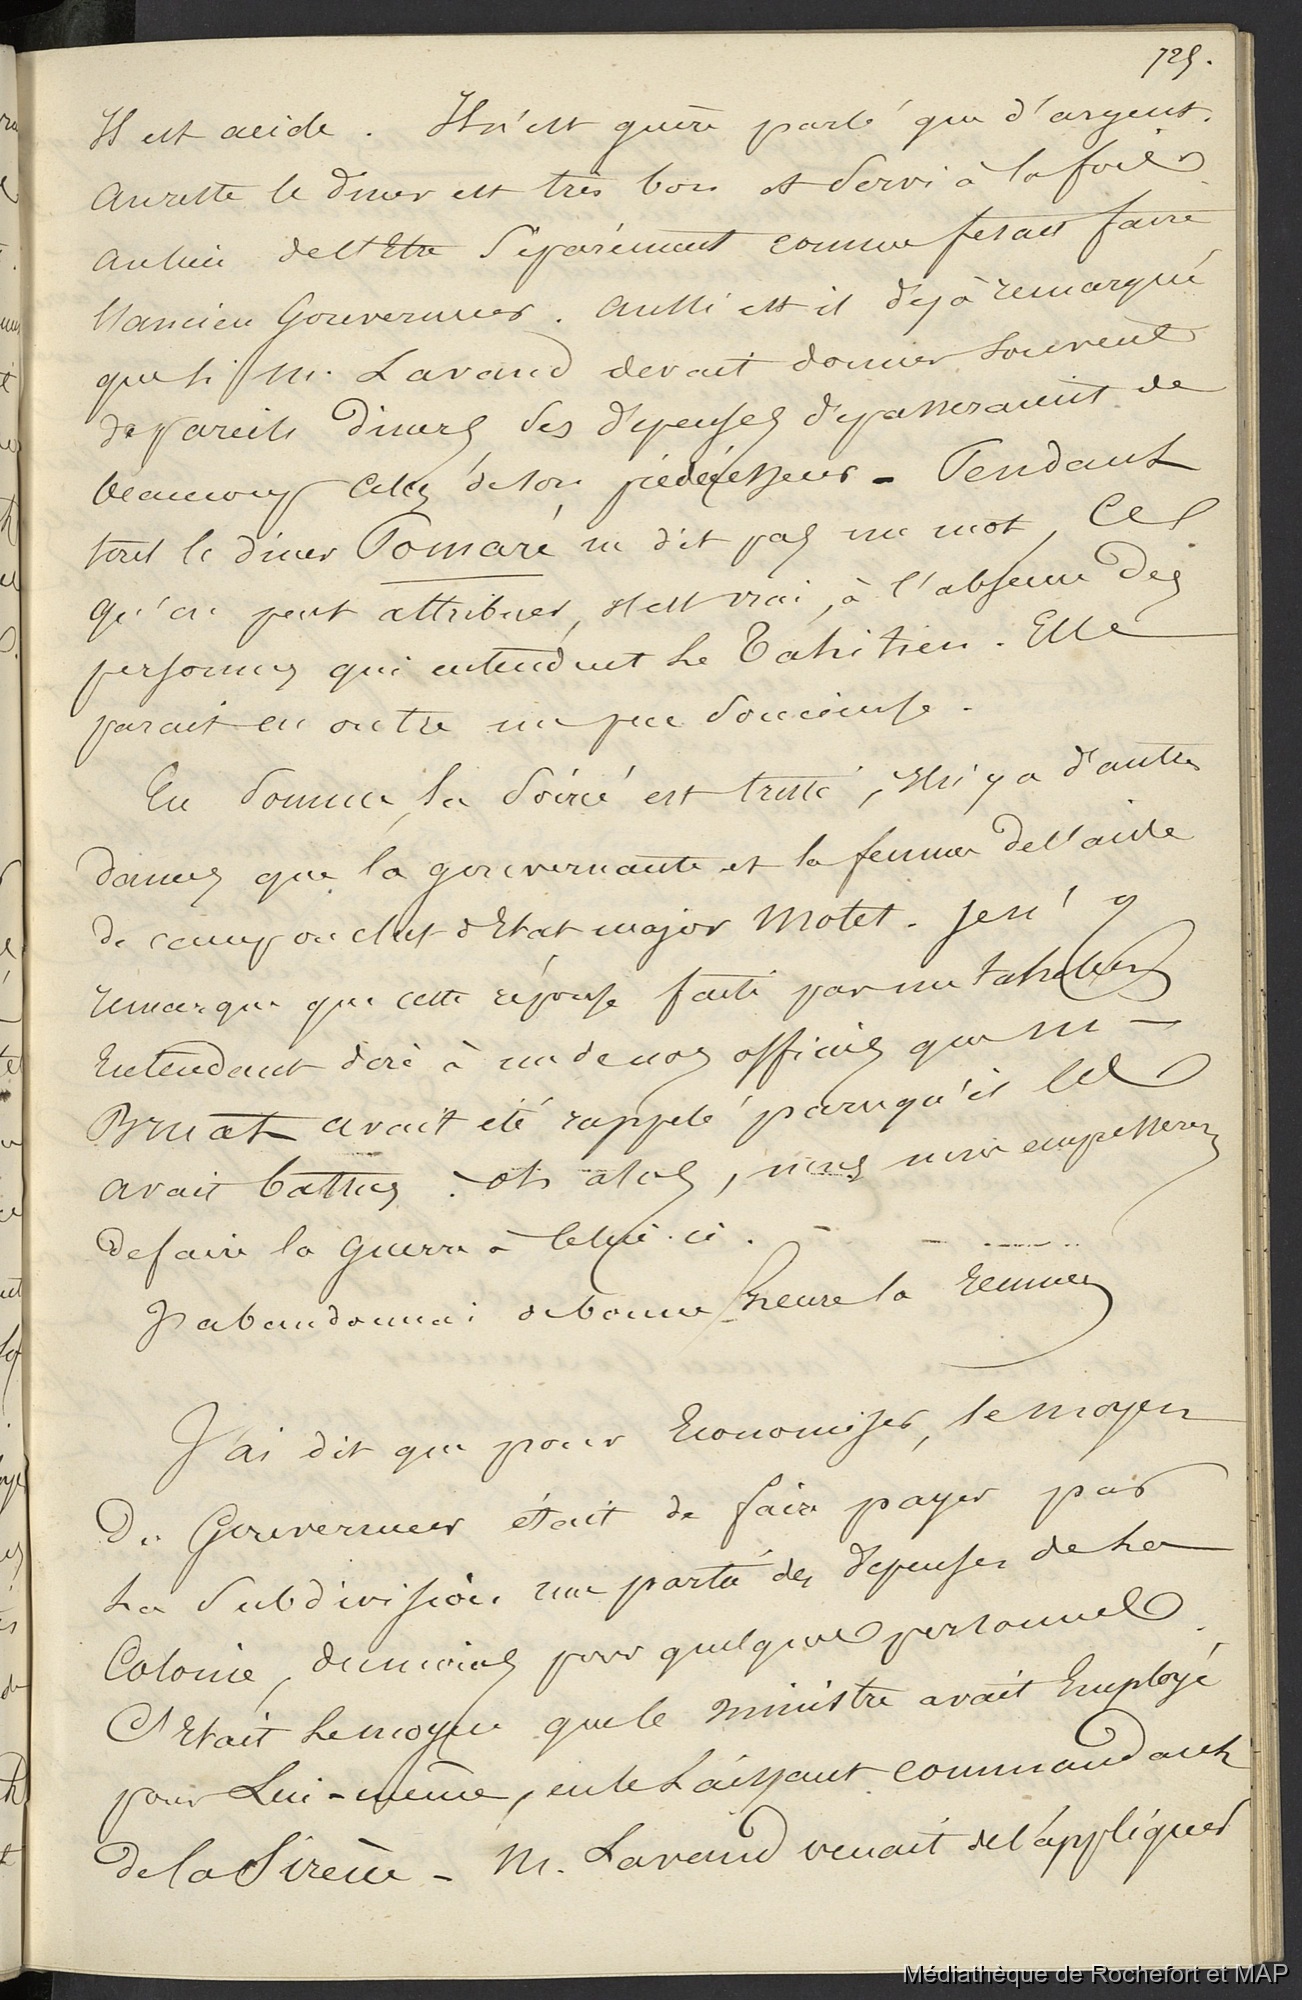 725.
Il est acide. Il n'est guère parlé que d'argent.
Au reste le diner est très bon et servi à la fois
au lieu de l'Etre séparément comme fesait faire
l'ancien Gouverneur. Aussi est il dejà remarqué
que si M. Lavaud devait donner souvent
de pareils diners ses dépenses dépasseraient de
beaucoup celles de son prédécesseur - Pendant
tout le diner Pomaré ne dit pas un mot, ce
qu'on peut attribuer, il est vrai, à l'absence des
personnes qui entendent le Tahitien. Elle
parait en outre un peu soucieuse.
En somme, la soirée est triste, il n'y a d'autres
dames que la gouvernante et la femme de l'aide
de camp ou chef d'Etat major Motet. Je n'y
remarque que cette réponse faite par un
Entendant dire à un de nos officiers que M -
Bruat avait été rappelé parcequ'il les
avait battus : oh alors, nous nous empresserons
de faire la guerre à celui-ci.
J'abandonnai de bonne heure la réunion
J'ai dit que pour Economiser, le moyen
du Gouverneur était de faire payer par
la Subdivision une partie des dépenses de la
Colonie, du moins pour quelque personnel.
C'Etait le moyen que le ministre avait Employé
pour Lui-même, en le laissant commandant
de la Sirène - M. Lavaud venait de l'appliquer
Médiathèque de Rochefort et MAP